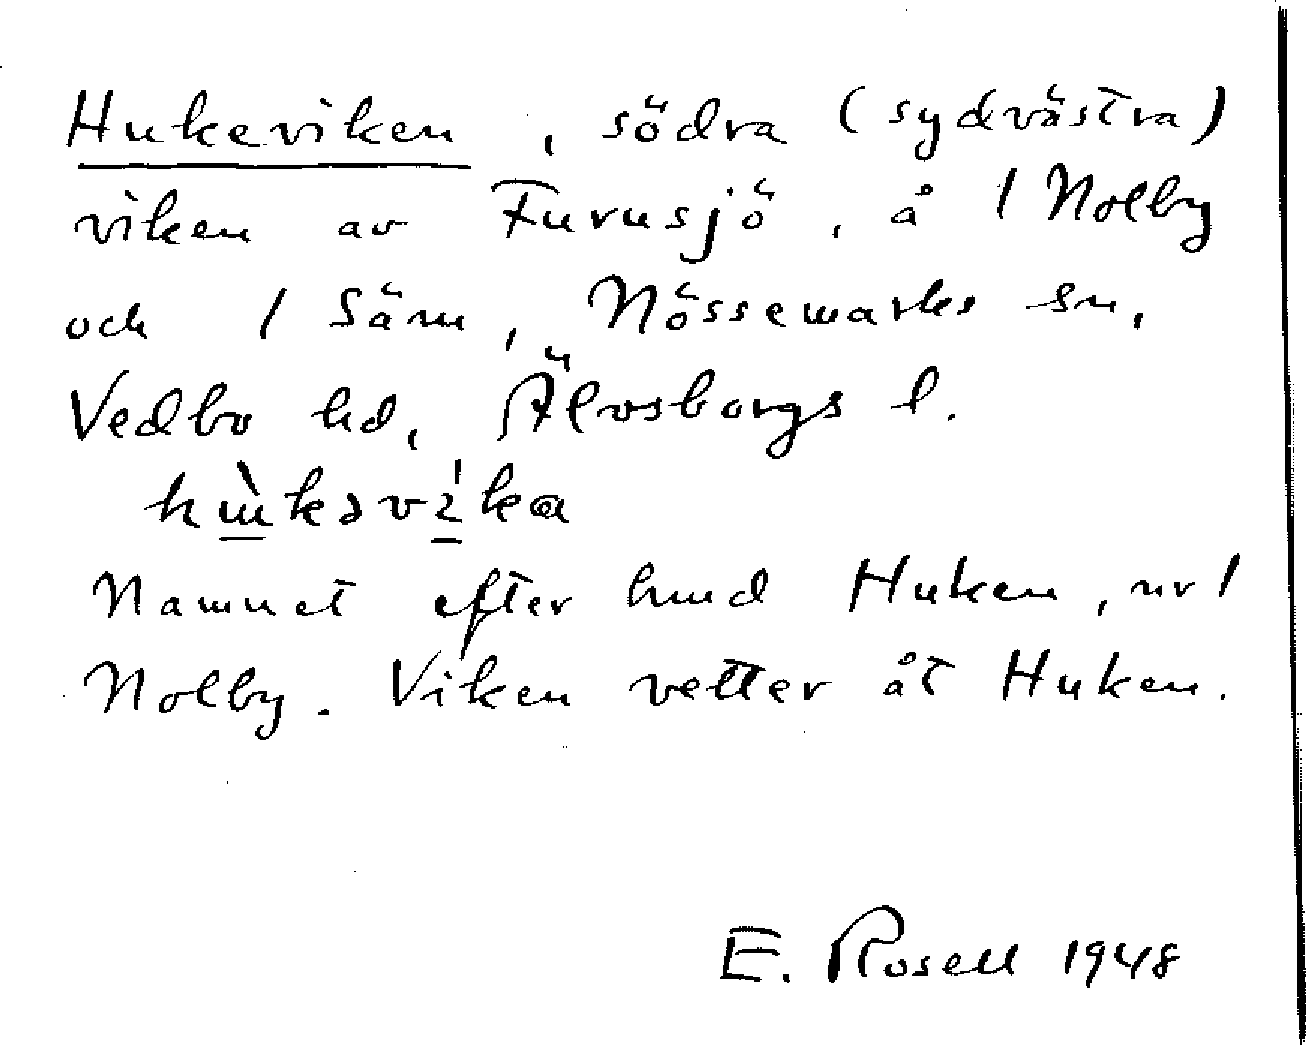 Hukeviken, södra (sydvästra)
viken av Furusjö, å 1 Nolby
och 1 Säm, Nössemarks sn,
Vedbo hd, Älvsborgs l.
Namnet efter hmd Huken, ur 1
Nolby. Viken vetter åt Huken.
E. Rosell 1948